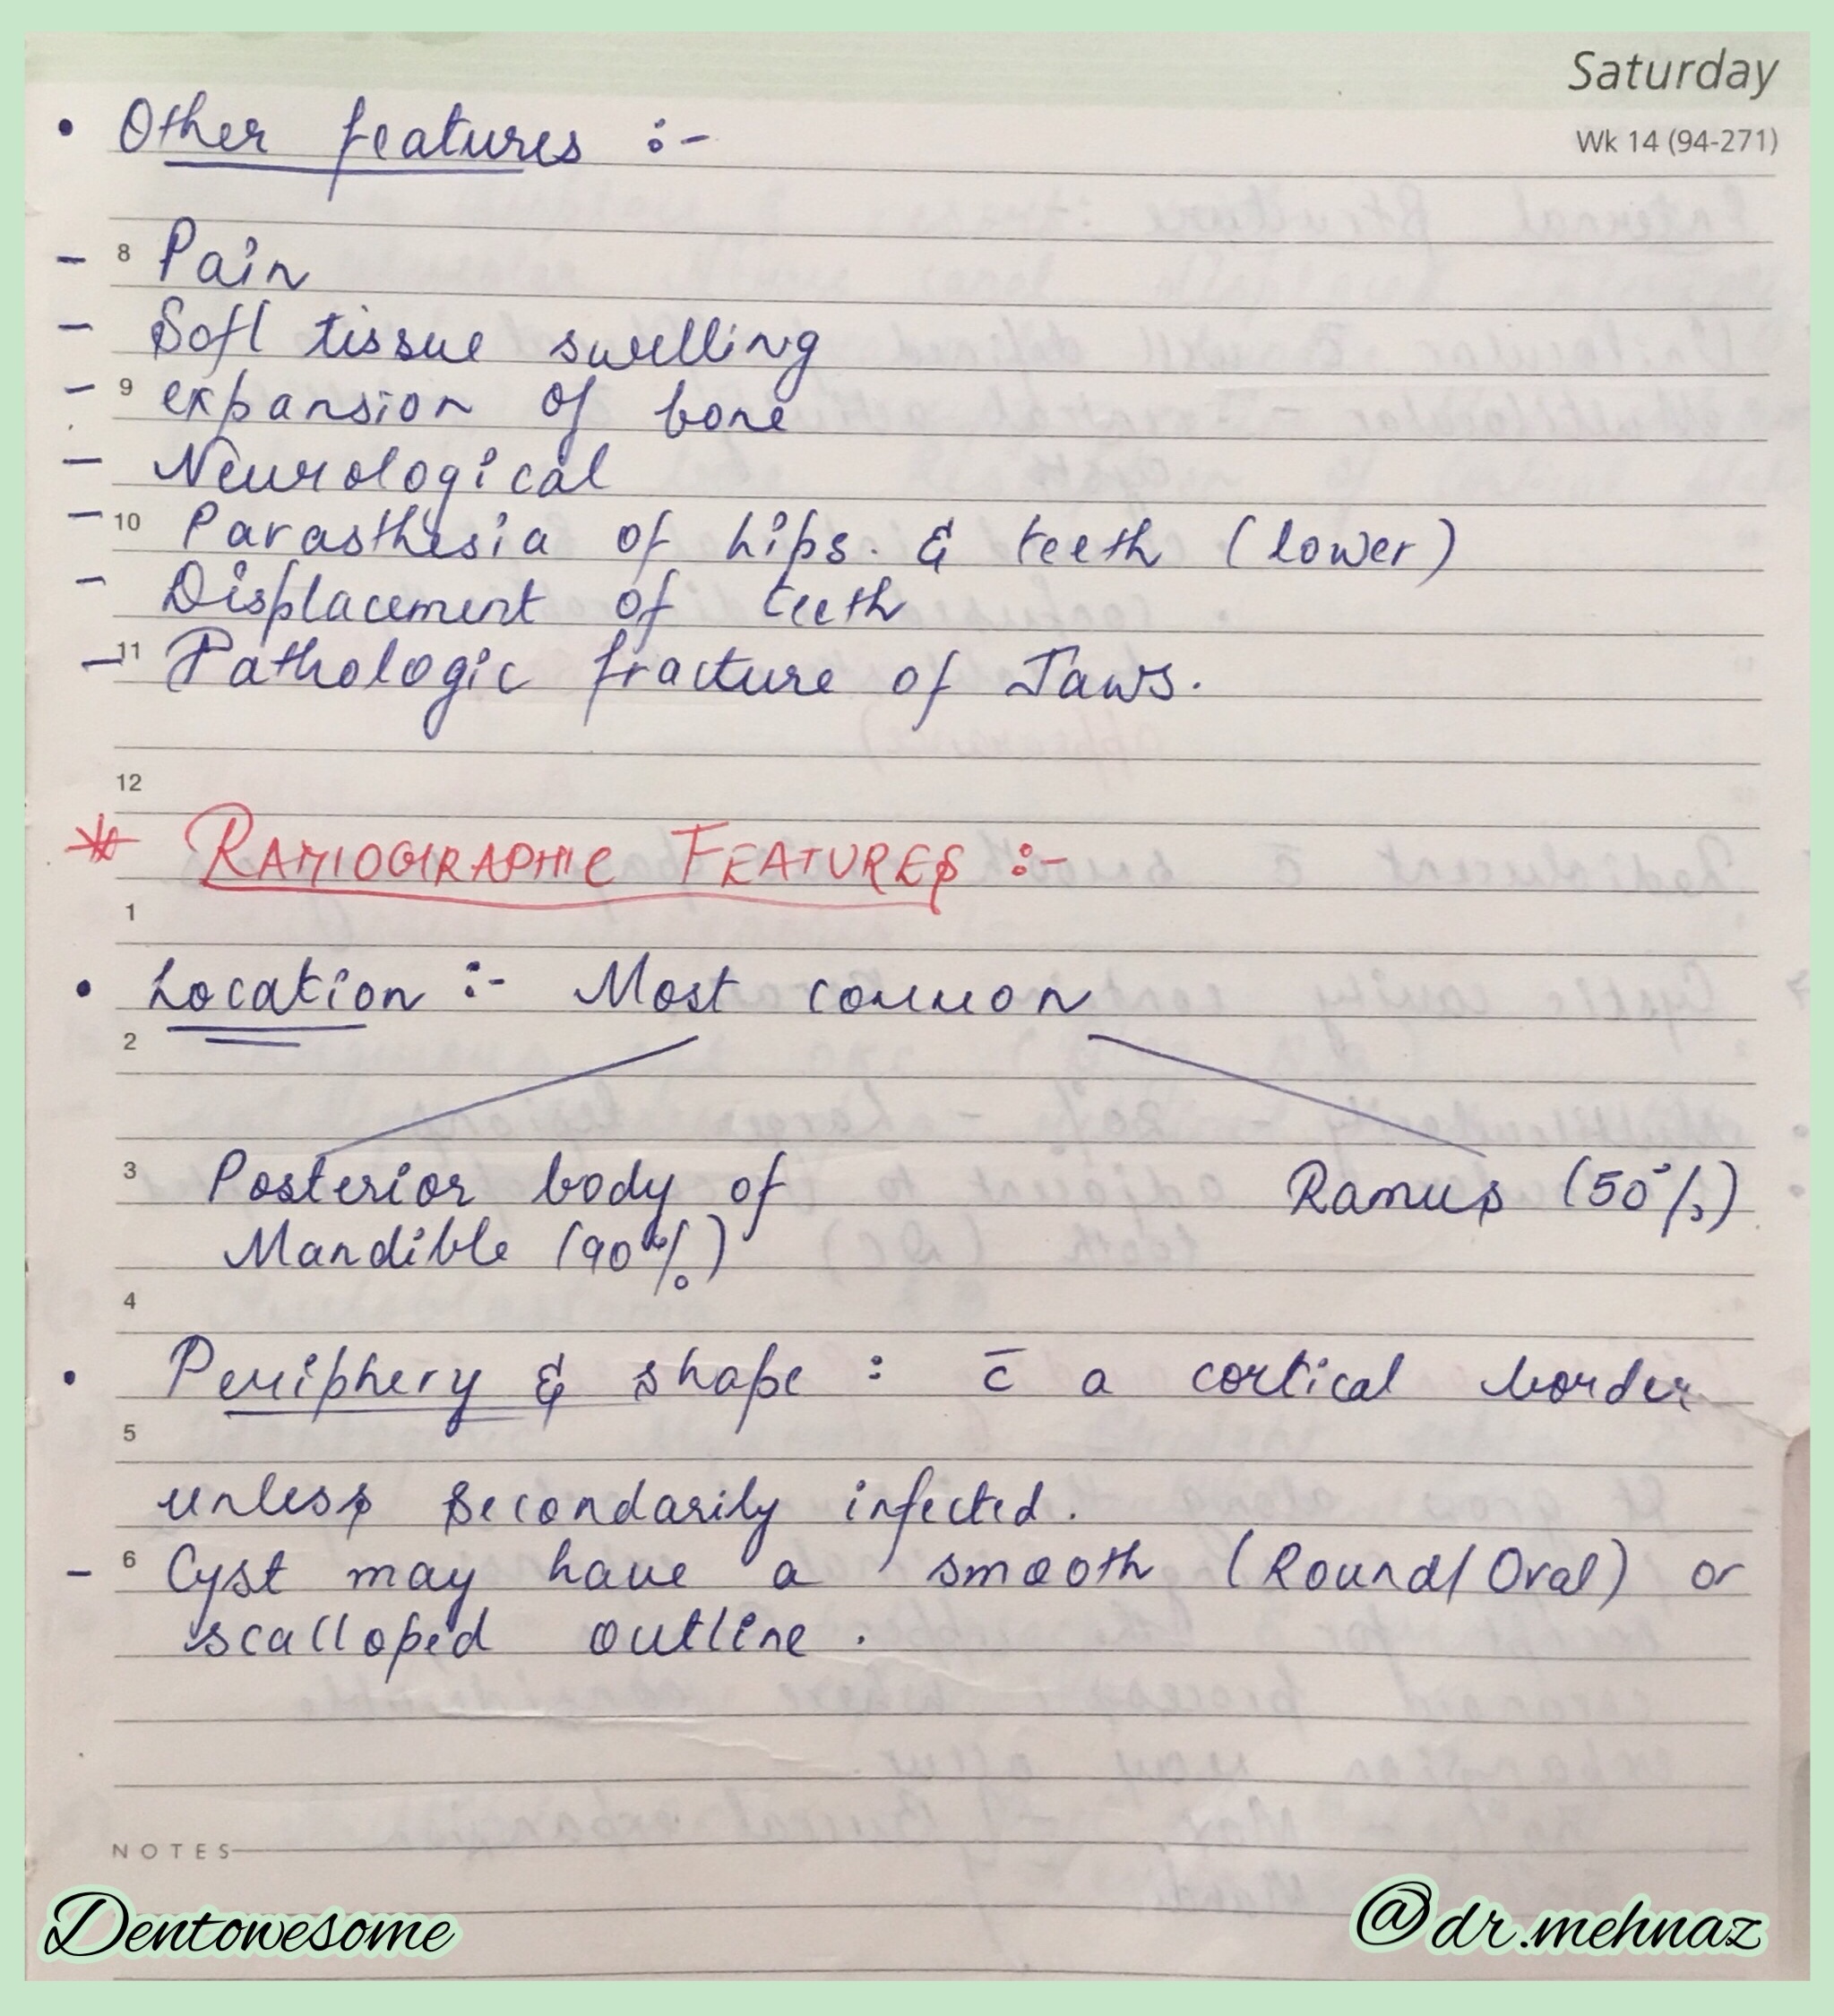 Saturday
Wk 14 (94-271)
• Other features :-
- 8 Pain
- Soft tissue swelling
- 9 expansion of bone
- Neurological
- 10 Parasthesia of Lips. & teeth (lower)
- Displacement of teeth
- 11 Pathologic fracture of Jaws.
12
* RADIOGRAPHIC FEATURES :-
1
• Location :- Most common
2
3 Posterior body of Ramus (50%)
Mandible (90%)
4
• Periphery & shape : c̄ a cortical border
5
unless secondarily infected.
- 6 Cyst may have a smooth (Round/Oval) or
scalloped outline.
NOTES
Dentowesome @dr.mehnaz